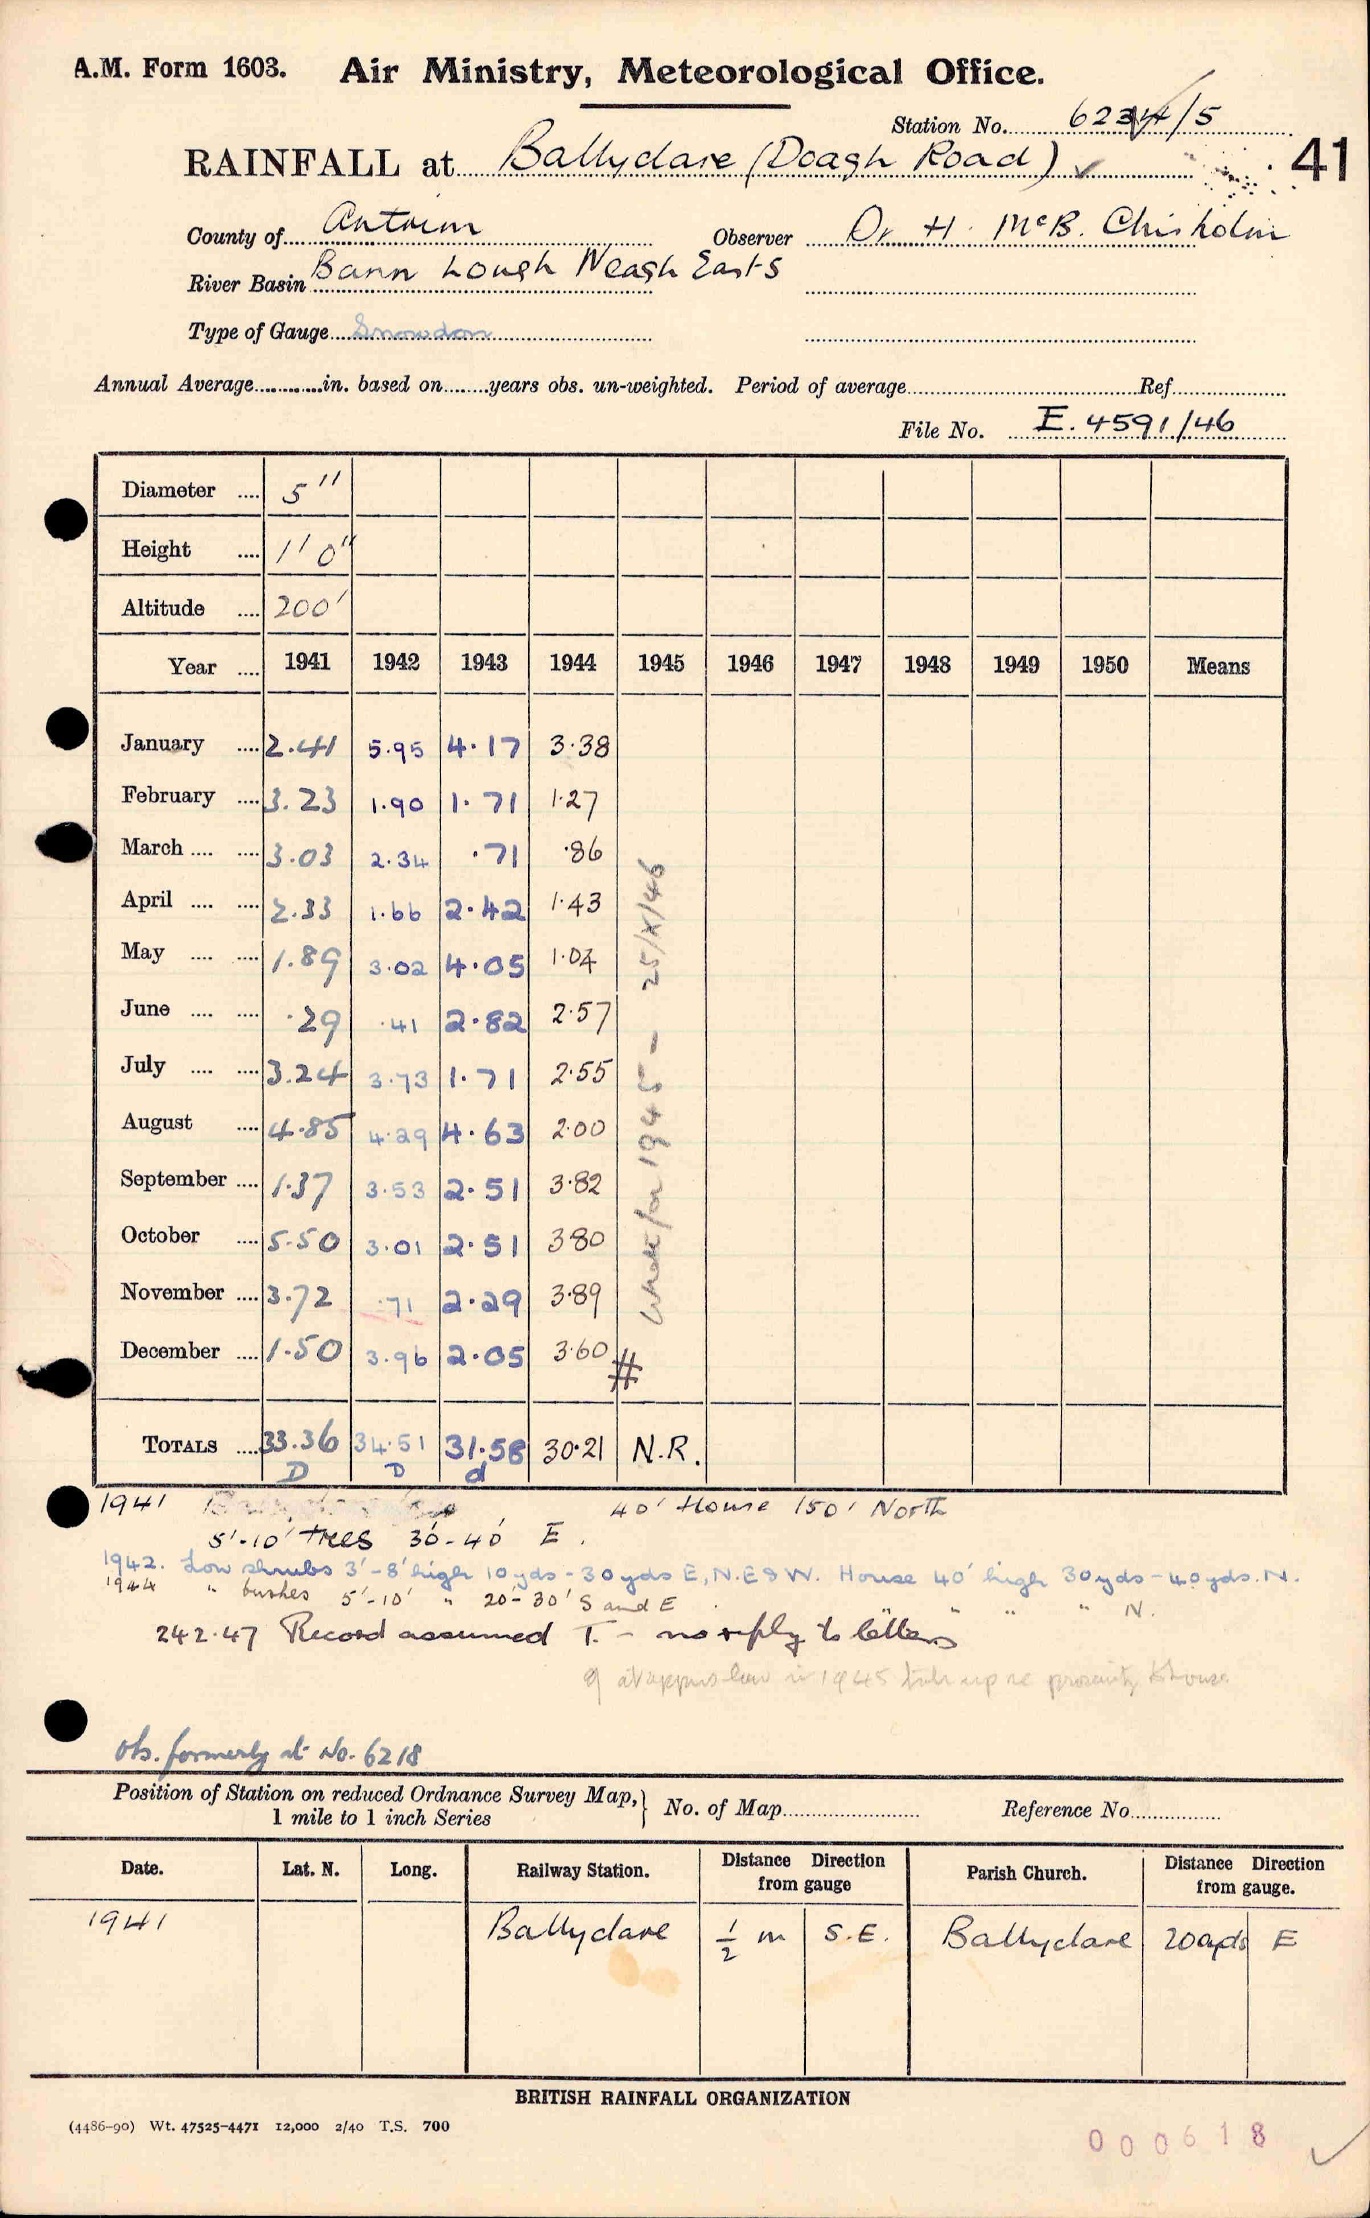 A.M. Form 1603. Air Ministry, Meteorological Office.
Station No. 6234/5
RAINFALL at Ballyclare (Doagh Road) ✓ 41
County of Antrim Observer Dr H. McB. Chisholm
River Basin Bann Lough Neagh East S
Type of Gauge Snowdon
Annual Average in. based on years obs. un-weighted. Period of average Ref
File No. E. 4591/46
Diameter .... 5"
Height .... 1' 0"
Altitude .... 200'
Year .... 1941 1942 1943 1944 1945 1946 1947 1948 1949 1950 Means
January .... 2.41 5.95 4.17 3.38
February .... 3.23 1.90 1.71 1.27
March .... .... 3.03 2.34 .71 .86
April .... .... 2.33 1.66 2.42 1.43
May .... .... 1.89 3.02 4.05 1.04
June .... .... .29 .41 2.82 2.57
July .... .... 3.24 3.73 1.71 2.55
August .... 4.85 4.29 4.63 2.00
September .... 1.37 3.53 2.51 3.82
October .... 5.50 3.01 2.51 3.80
November .... 3.72 .71 2.29 3.89
December .... 1.50 3.96 2.05 3.60 #
Wrote for 1945 — 25/X/46
TOTALS .... 33.36 34.51 31.58 30.21 N.R.
D D d
1941 40' House 150' North
5'-10' trees 30'-40' E.
1942. Low shrubs 3'-8' high 10yds - 30yds E, N.E & W. House 40' high 30yds - 40yds. N.
1944 " bushes 5'-10' " 20'-30' S and E " " " N.
24 2.47 Record assumed T. - no reply to letters
in 1945 take up re proximity to house
Obs. formerly at No. 6218
Position of Station on reduced Ordnance Survey Map, 1 mile to 1 inch Series } No. of Map Reference No.
Date. Lat. N. Long. Railway Station. Distance Direction from gauge Parish Church. Distance Direction from gauge.
1941 Ballyclare 1/2 m S.E. Ballyclare 20yds E
BRITISH RAINFALL ORGANIZATION
(4486-90) Wt. 47525-4471 12,000 2/40 T.S. 700
000618 ✓